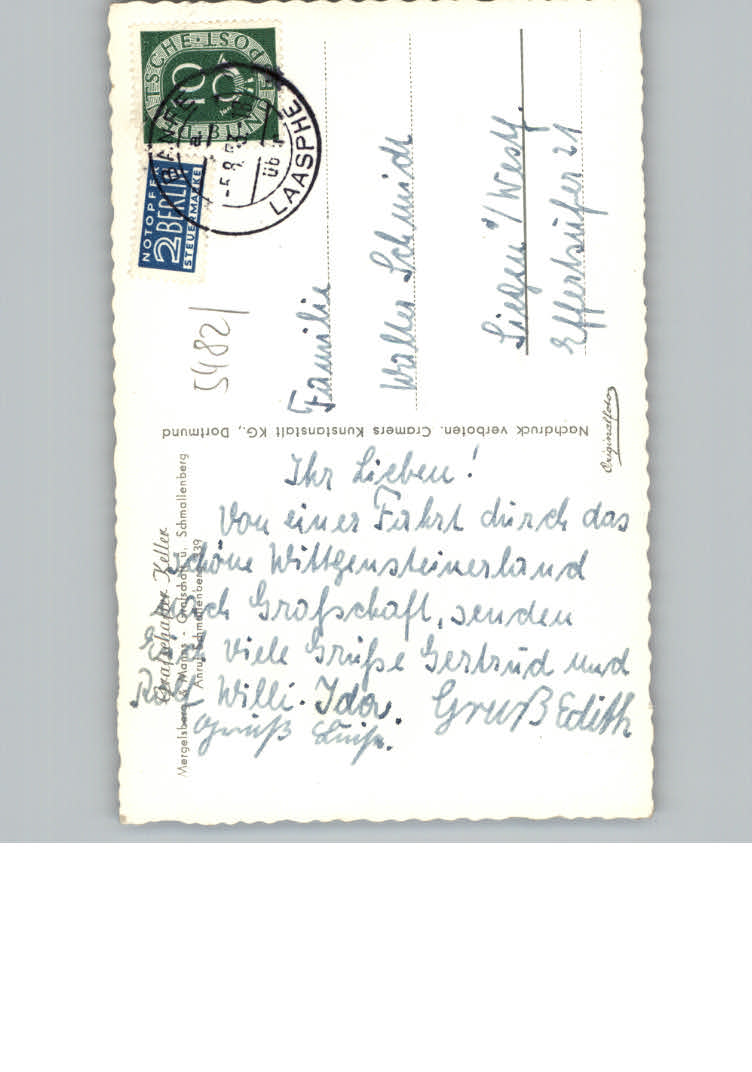 DEUTSCHE BUNDESPOST
10
BANFE
a
-5.8.53
über
LAASPHE
NOTOPFER
2 BERLIN
STEUERMARKE
54821
Familie
Walter Schmidt
Siegen i/Westf.
Effertsufer 21
Nachdruck verboten. Cramers Kunstanstalt KG., Dortmund
Originalfoto
Grafschafter Keller
Mergelsberg & Manns - Grafschaft u. Schmallenberg
Anruf Schmallenberg 339
Ihr Lieben!
Von einer Fahrt durch das
schöne Wittgensteinerland
nach Grafschaft, senden
Euch viele Grüße Gertrud und
Rolf Willi. Ida. Gruß Edith
Gruß Luise.